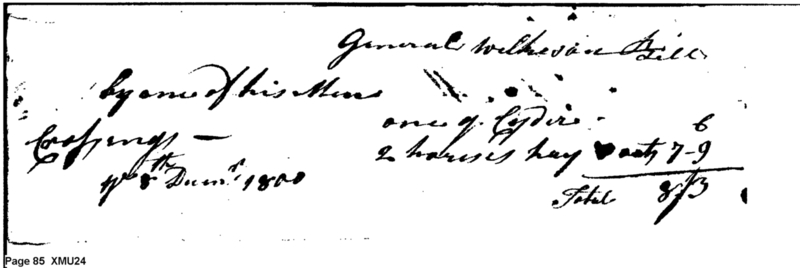 General Wilkeson Bill
by one of his Men
one q. Cyder - 6
Crossings —
2 horses hay & oats 7-9
8th Decmr 1800
Total 8/3
Page 85 XMU24